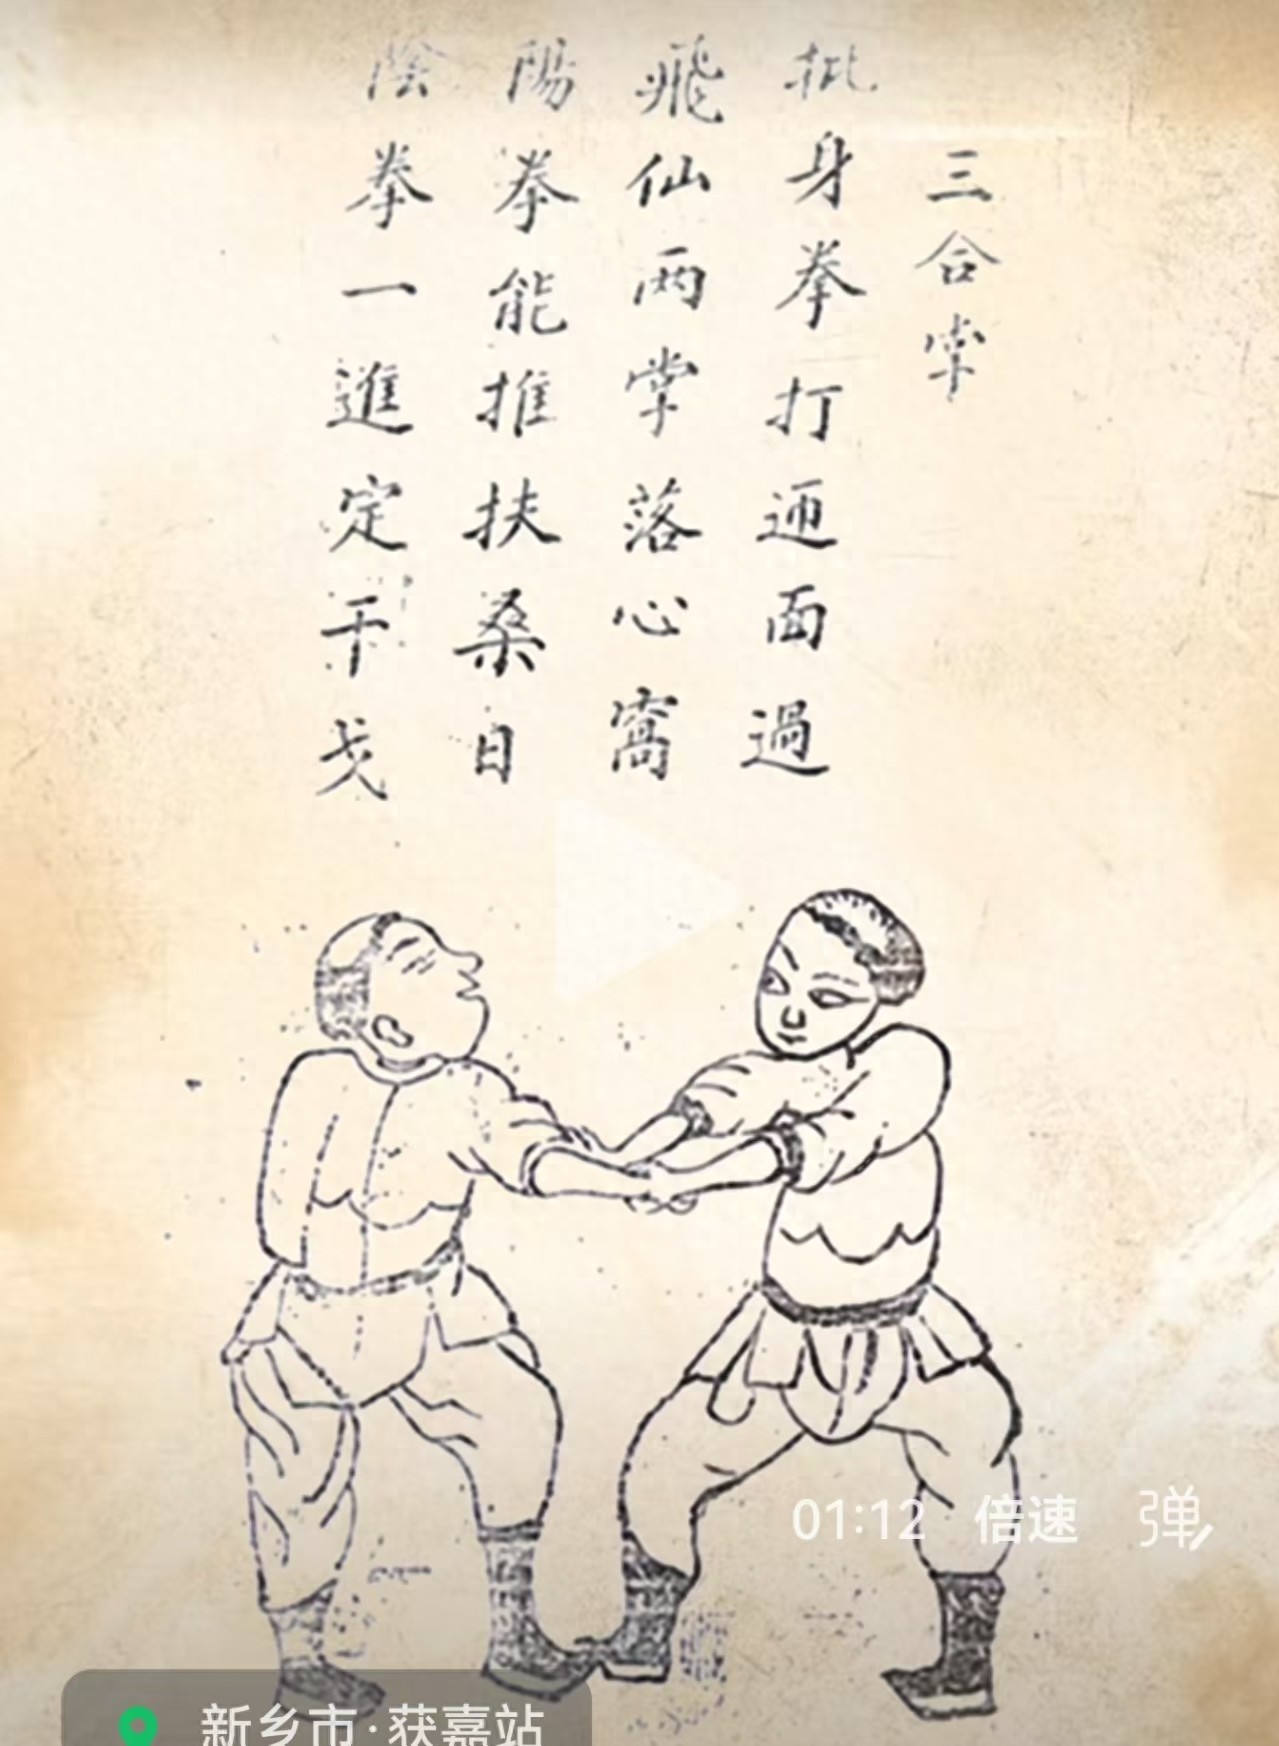 三合掌
批身拳打迊面過
飛仙两掌落心窩
陽拳能推扶桑日
陰拳一進定干戈
01:12 倍速 弹
新乡市·获嘉站